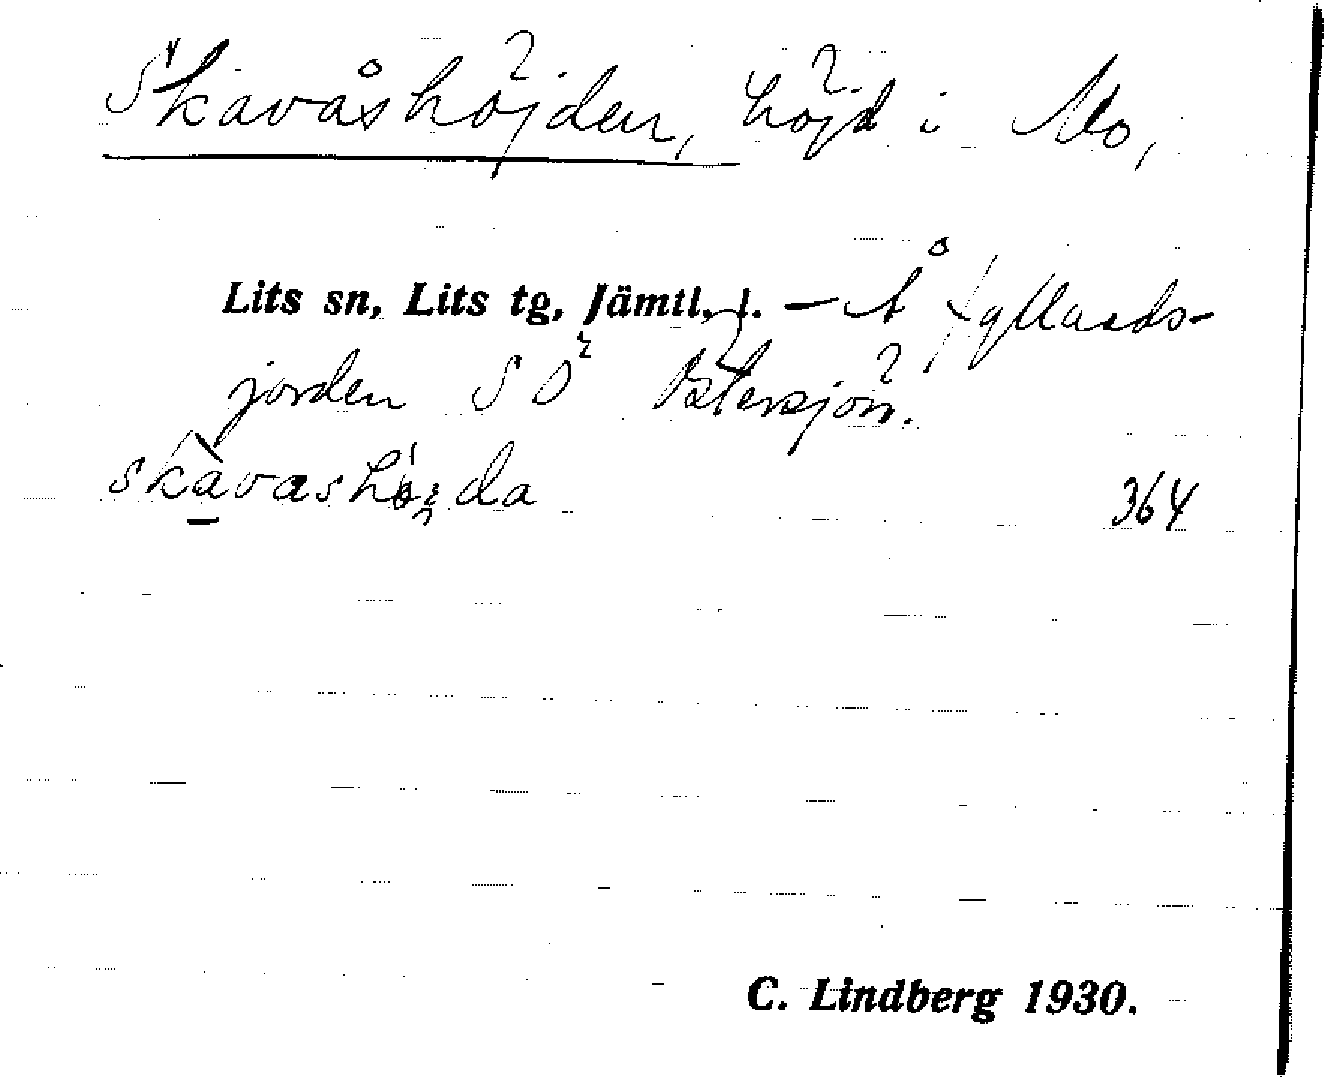 Skavåshöjden, höjd i Mo,
Lits sn, Lits tg, Jämtl. l. — Å
jorden SO Östersjön.
364
C. Lindberg 1930.